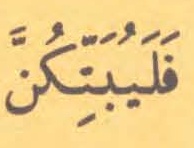 فَلَيُبَتِّكُنَّ